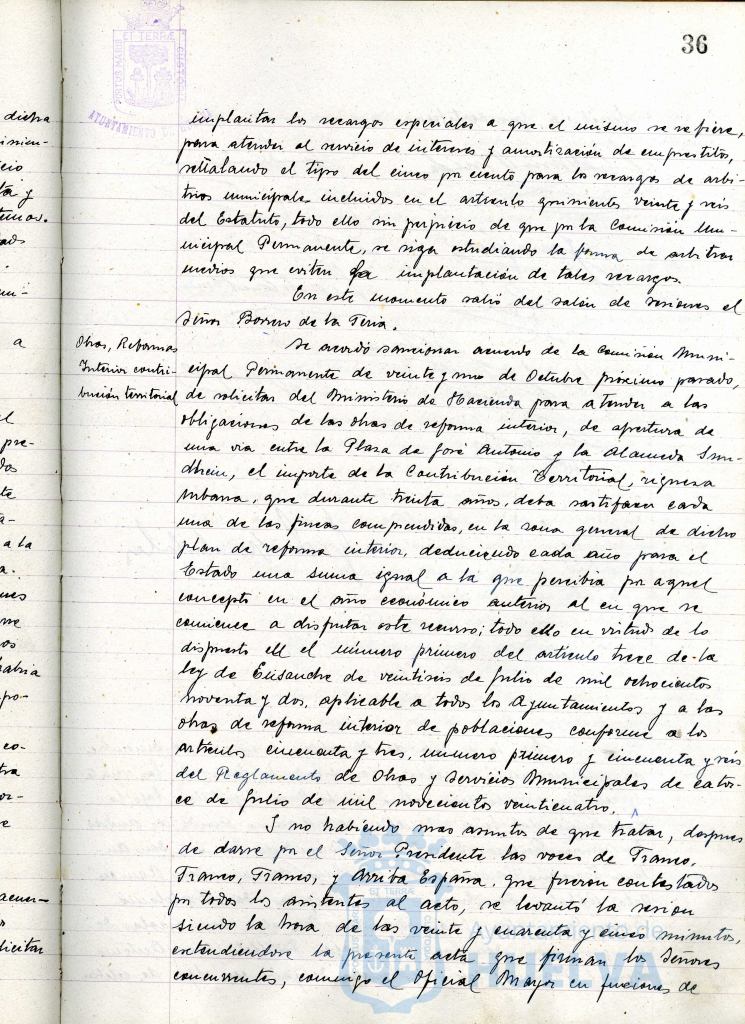 36
ET TERRÆ
AYUNTAMIENTO DE
implantar los recargos especiales a que el mismo se refiere,
para atender al servicio de intereses y amortización de emprestitos,
señalando el tipo del cinco por ciento para los recargos de arbi-
trios municipales incluidos en el artículo quinientos veinte y seis
del Estatuto, todo ello sin perjuicio de que por la Comisión Mu-
nicipal Permanente, se siga estudiando la forma de arbitrar
medios que eviten la implantación de tales recargos.
En este momento salió del salón de sesiones el
Señor Borrero de la Feria.
Obras, Reformas
Interior contri-
bución territorial
Se acordó sancionar acuerdo de la Comisión Muni-
cipal Permanente de veinte y uno de Octubre próximo pasado,
de solicitar del Ministerio de Hacienda para atender a las
obligaciones de las obras de reforma interior, de apertura de
una via entre la Plaza de José Antonio y la Alameda Sun-
dheim, el importe de la Contribución Territorial, riqueza
urbana, que durante treinta años, deba satisfacer cada
una de las fincas comprendidas, en la zona general de dicho
plan de reforma interior, deduciendo cada año para el
Estado una suma igual a la que percibia por aquel
concepto en el año económico anterior al en que se
comience a disfrutar este recurso; todo ello en virtud de lo
dispuesto en el número primero del artículo trece de la
ley de Ensanche de veintiseis de Julio de mil ochocientos
noventa y dos, aplicable a todos los Ayuntamientos y a las
obras de reforma interior de poblaciones conforme a los
artículos cincuenta y tres, número primero y cincuenta y seis
del Reglamento de Obras y Servicios Municipales de cator-
ce de Julio de mil novecientos veinticuatro.
Y no habiendo mas asuntos de que tratar, despues
de darse por el Señor Presidente las voces de Franco,
Franco, Franco, y Arriba España, que fueron contestados
por todos los asistentes al acto, se levantó la sesion
siendo la hora de las veinte y cuarenta y cinco minutos,
extendiendose la presente acta que firman los Señores
concurrentes, conmigo el Oficial Mayor en funciones de
Ayuntamiento de
HUELVA